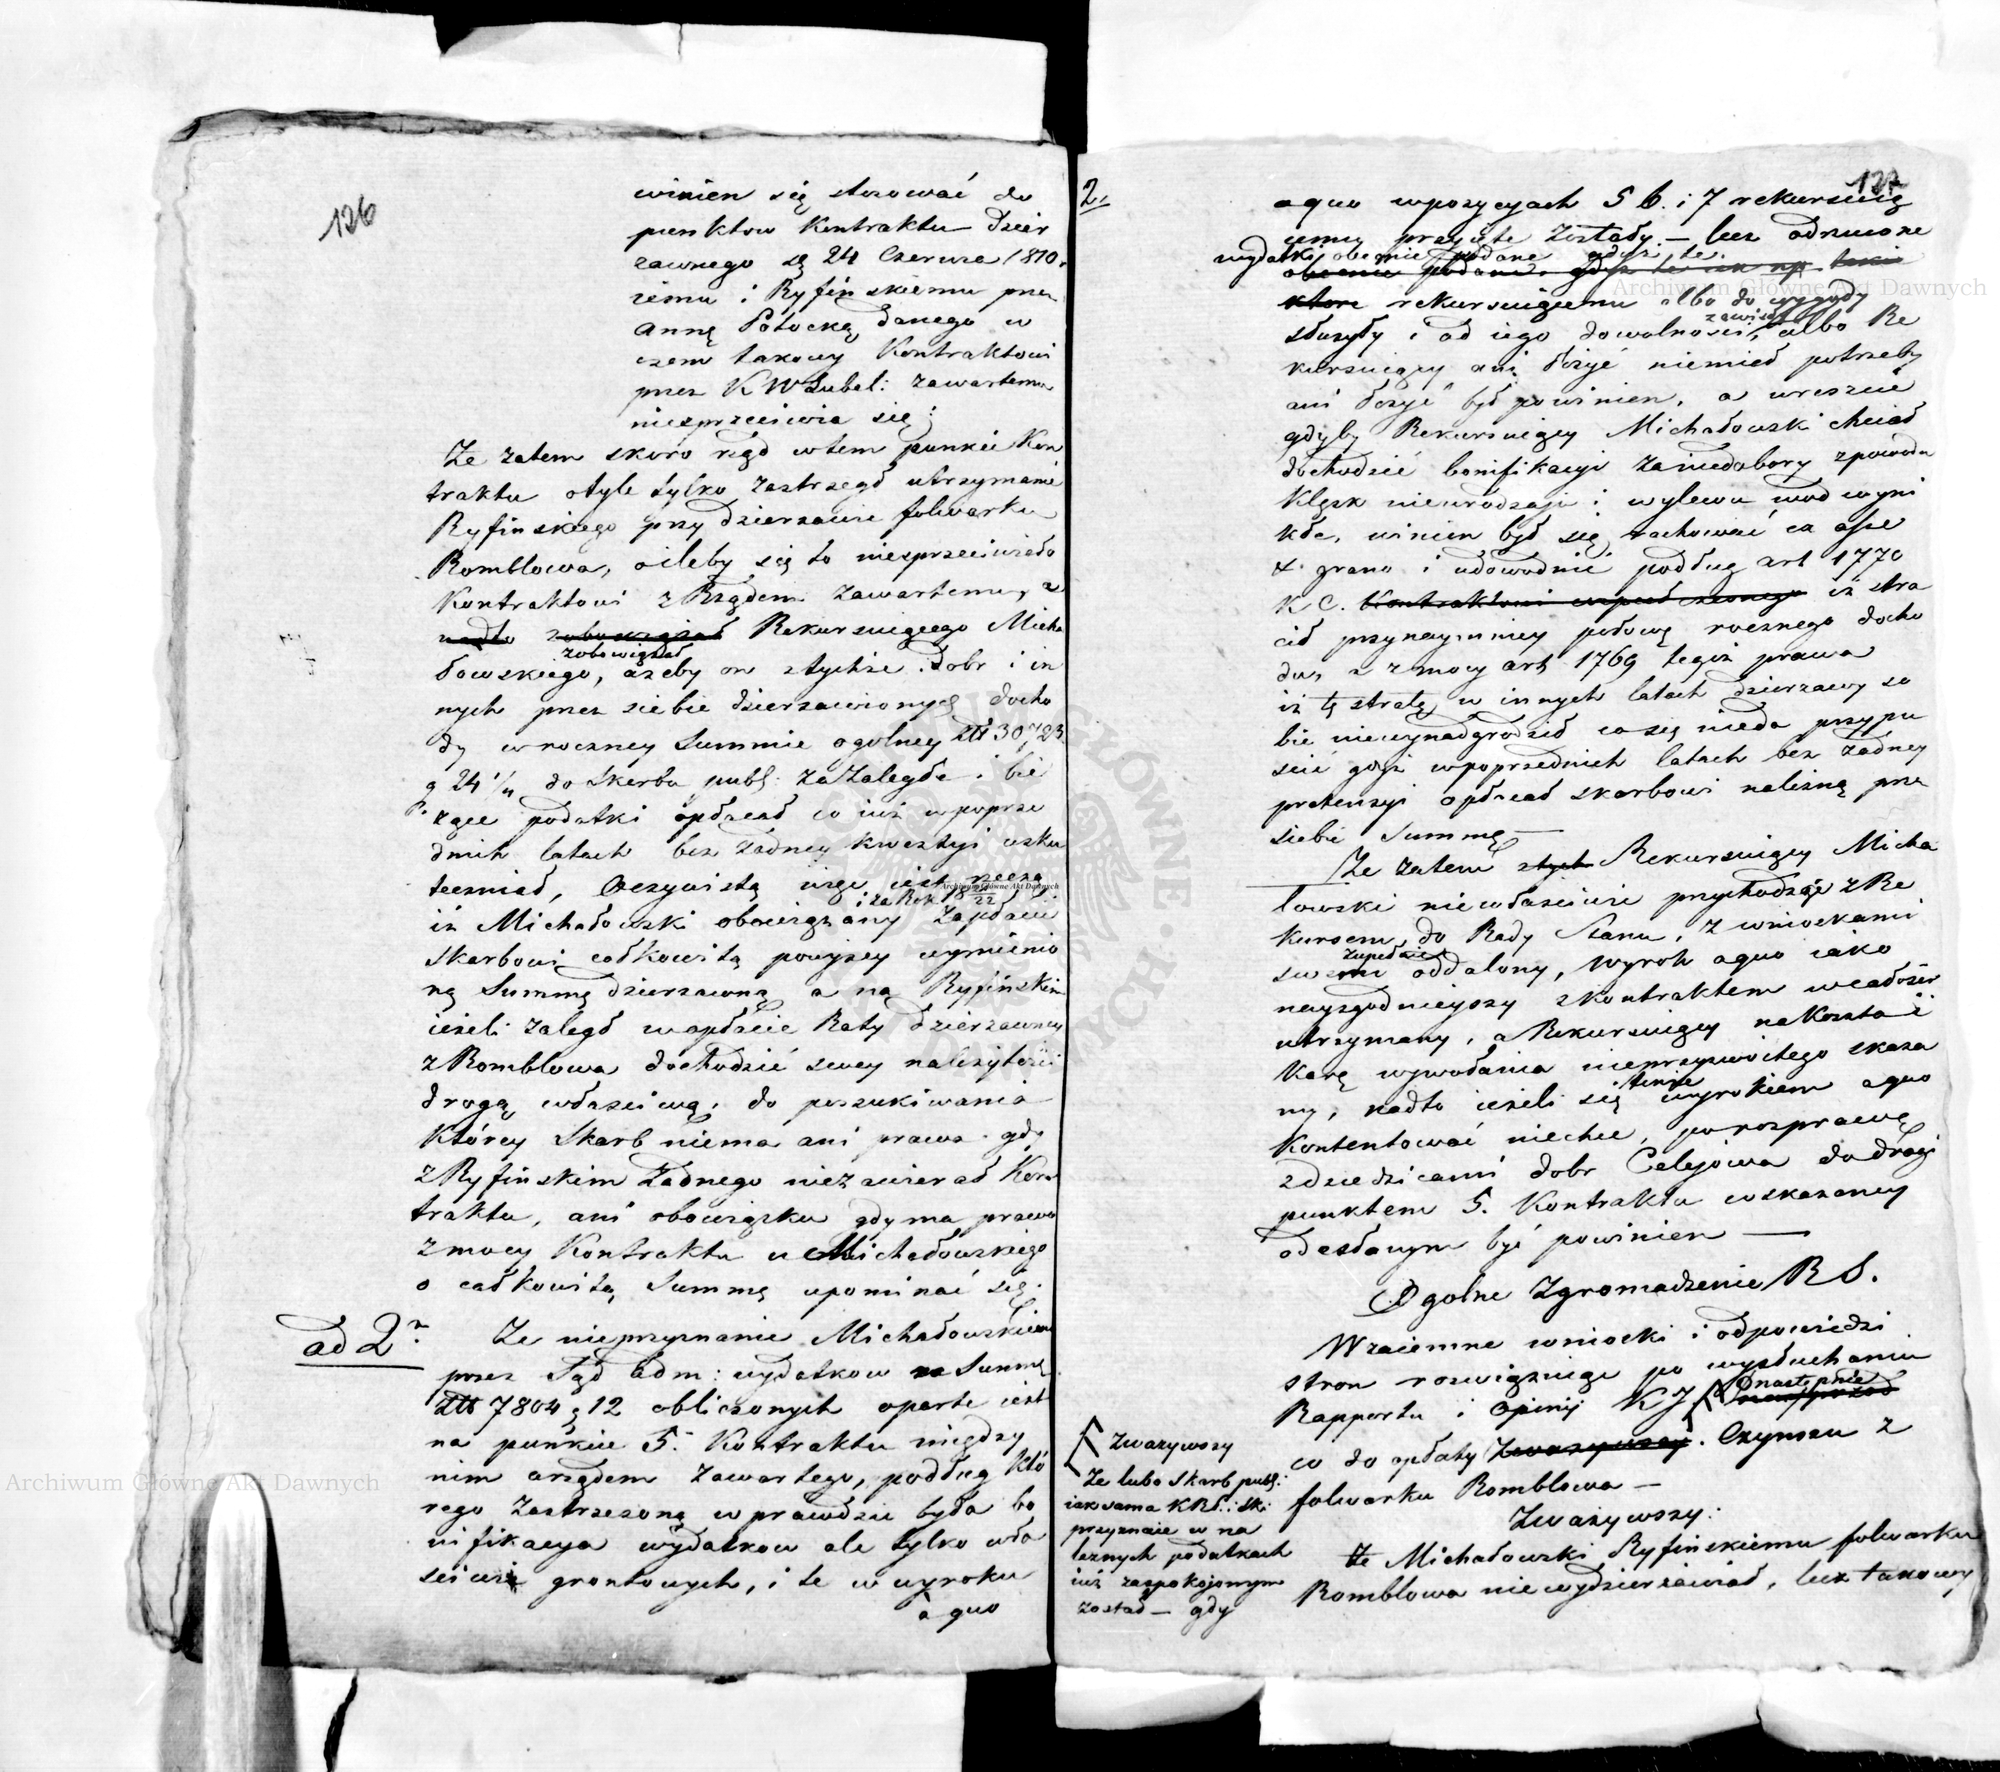 126
winien się stosować do
punktow Kontraktu dzier
zawnego 24 Czerwca 1810.
temu i Ryfinskiemu prze
Annę Potocką danego w
czem takowy Kontraktowi
przez K W Lubel: zawartemu
niesprzeciwia się;
Ze zatem skoro rząd w tem punkcie Kon
traktu otyle tylko zastrzegł utrzymanie
Ryfinskiego przy dzierzawie folwarku
Romblowa, oileby się to niesprzeciwiało
Kontraktowi z Rządem zawartemu, a
nadto zobowiązał Rekursuiącego Micha
zobowiązał
łowskiego, ażeby on z tychże dobr i in
nych przez siebie dzierzawionych docho
dy w roczney Summie ogolney Złł 30,723
g 24 1/11 do Skarbu publ: za zaległe i bie
żące podatki opłacał co iuż w poprze
dnich latach bez żadney kwestyi usku
teczniał, Oczywistą więc iest rzeczą
i za Rok 18 /22
iż Michałowski obowiązany zapłacić
Skarbowi całkowitą powyzey wymienio
ną Summę dzierzawną a na Ryfinskim
ieżeli zaległ w opłacie Raty dzierzawney
z Romblowa dochodzić swey należytości
drogą właściwą, do poszukiwania
którey Skarb niema ani prawa gdy
z Ryfinskim żadnego niezawierał Kon
traktu, ani obowiązku gdy ma prawo
z mocy Kontraktu u Michałowskiego
o całkowitą Summę upominać się.
ad 2m
Ze nieprzyznanie Michałowskiemu
przez Sąd adm: wydatkow na Summę
Złł 7804 g 12 obliczonych oparte iest
na punkcie 5. Kontraktu między
nim a rządem zawartego, podług któ
rego zastrzeżoną wprawdzie była bo
nifikacya wydatkow ale tylko wła
sciwie grontowych, i te w wyroku
a quo
2.
127
a quo w pozycyach 5 6. i 7 rekursuią
cemu przyięte zostały — lecz odrzucone
wydatki obecnie podane gdyż te
obecnie podane, gdyż te iak np. takie
ktore rekursuiącemu albo do wygody
zawisły
służyły i od iego dowolnosci, albo Re
kursuiący ani łożyć niemiał potrzeby
ani łożyć był powinien, a wreszcie
gdyby Rekursuiący Michałowski chciał
dochodzić bonifikacyi za niedobory z powodu
Klęsk nieurodzaju i wylewu wod wyni
kłe, winien był się zachować co do
 grano i udowodnić podług art 1770
K C. Kontraktowi iż stra
cił przynaymniey połowę rocznego docho
du, a z mocy art 1769 tegoż prawa
iż tę stratę w innych latach dzierzawy so
bie niewynadgrodził co się nieda przypu
scić gdyż w poprzednich latach bez żadney
pretensyi opłacał skarbowi należną prze
siebie Summę —
Ze zatem z tych Rekursuiący Micha
łowski niewłaściwie przychodząc z Re
kursem do Rady Stanu, z wnioskami
zupełnie
swemi oddalony, Wyrok a quo iako
nayzgodnieyszy z Kontraktem w całości
utrzymany, a Rekursuiący na Koszta i
Karę wywołania nieprzyzwoitego skaza
ny, nadto ieżeli się tymże wyrokiem a quo
Kontentować niechce, po rozprawę
z dziedzicami dobr Celejowa do drogi
punktem 5. Kontraktu wskazaney
odesłanym być powinien —
Ogolne Zgromadzenie R S.
Wzaiemne wnioski i odpowiedzi
stron rozwiązuiąc po wysłuchaniu
Rapportu i Opinij K J następnie
co do opłaty Zważywszy. Czynszu z
folwarku Romblowa —
Zważywszy:
Ze Michałowski Ryfinskiemu folwarku
Romblowa niewydzierżawiał, lecz takowy
Zważywszy
Ze lubo Skarb publ:
iak sama KRP.i Sk:
przyznaie w na
leznych podatkach
iuż zaspokojonym
został — gdy
Archiwum Główne Akt Dawnych
Archiwum Główne Akt Dawnych
Archiwum Główne Akt Dawnych